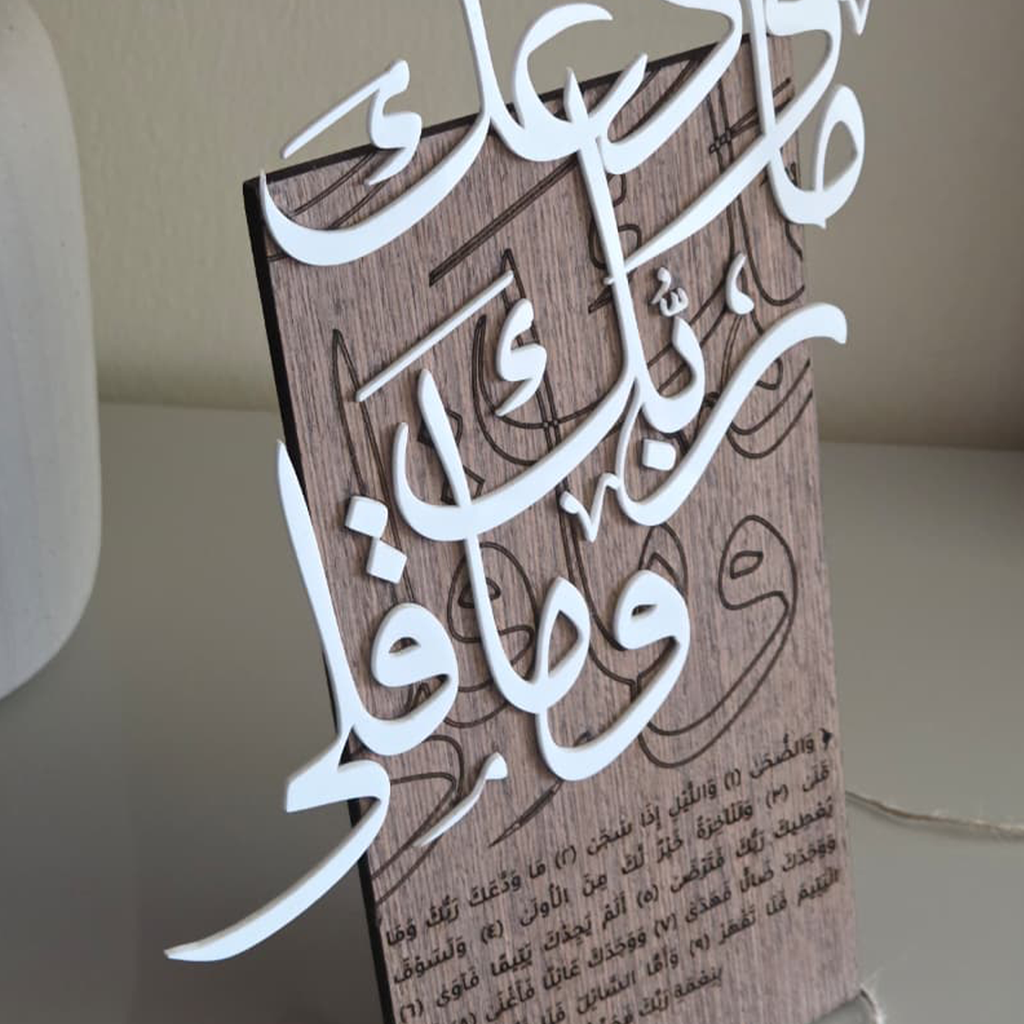 ما ودعك
ربك
وما قلى
﴿ وَالضُّحَىٰ (١) وَاللَّيْلِ إِذَا سَجَىٰ (٢) مَا وَدَّعَكَ رَبُّكَ وَمَا
قَلَىٰ (٣) وَلَلْآخِرَةُ خَيْرٌ لَّكَ مِنَ الْأُولَىٰ (٤) وَلَسَوْفَ
يُعْطِيكَ رَبُّكَ فَتَرْضَىٰ (٥) أَلَمْ يَجِدْكَ يَتِيمًا فَآوَىٰ (٦)
وَوَجَدَكَ ضَالًّا فَهَدَىٰ (٧) وَوَجَدَكَ عَائِلًا فَأَغْنَىٰ (٨)
الْيَتِيمَ فَلَا تَقْهَرْ (٩) وَأَمَّا السَّائِلَ فَلَا
بِنِعْمَةِ رَبِّكَ